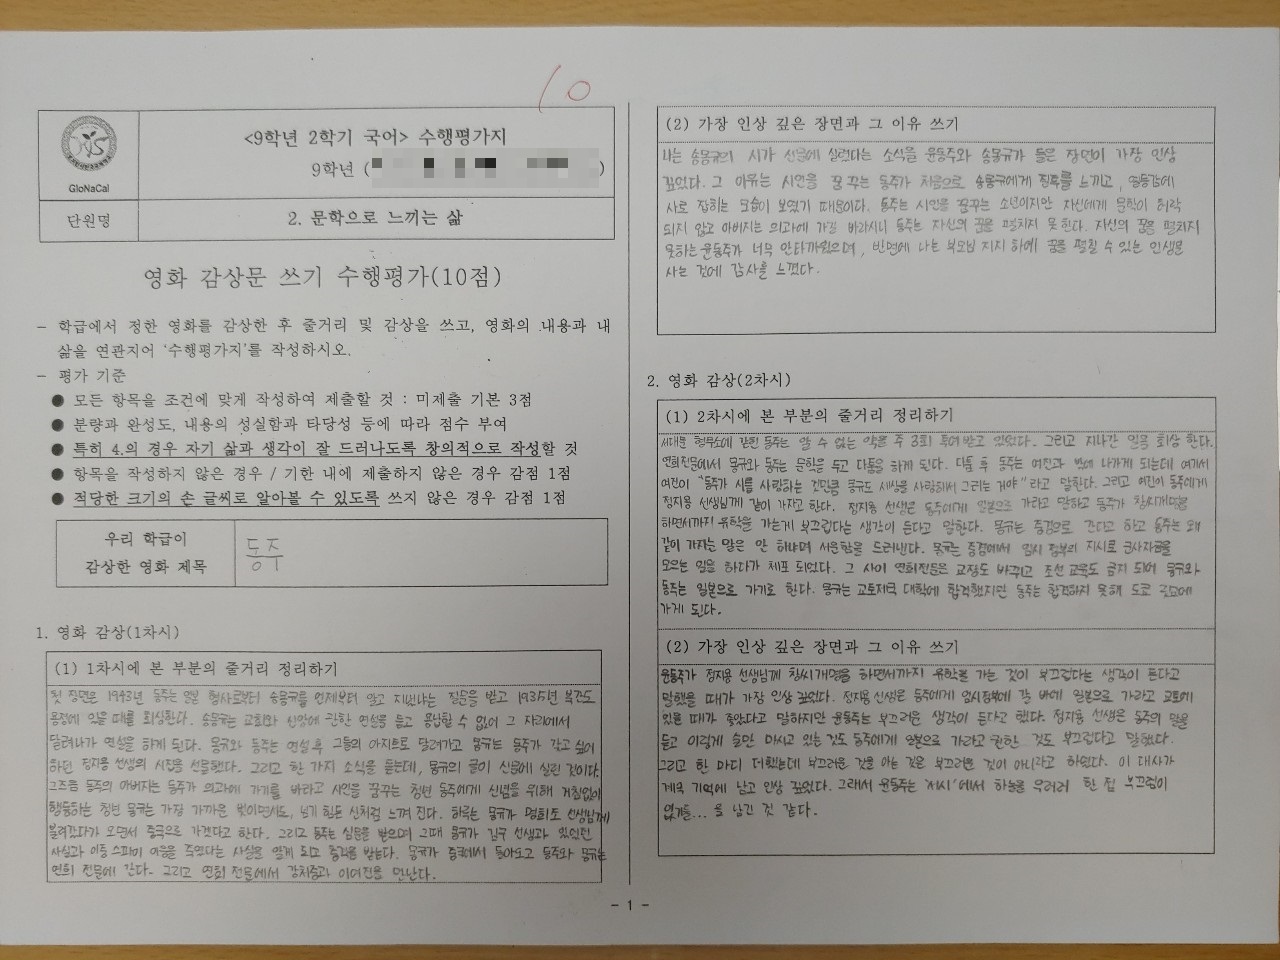 10
GloNaCal
<9학년 2학기 국어> 수행평가지
9학년 (
)
단원명
2. 문학으로 느끼는 삶
영화 감상문 쓰기 수행평가(10점)
- 학급에서 정한 영화를 감상한 후 줄거리 및 감상을 쓰고, 영화의 내용과 내
삶을 연관지어 '수행평가지'를 작성하시오.
- 평가 기준
● 모든 항목을 조건에 맞게 작성하여 제출할 것 : 미제출 기본 3점
● 분량과 완성도, 내용의 성실함과 타당성 등에 따라 점수 부여
● 특히 4.의 경우 자기 삶과 생각이 잘 드러나도록 창의적으로 작성할 것
● 항목을 작성하지 않은 경우 / 기한 내에 제출하지 않은 경우 감점 1점
● 적당한 크기의 손 글씨로 알아볼 수 있도록 쓰지 않은 경우 감점 1점
우리 학급이
감상한 영화 제목
동주
1. 영화 감상(1차시)
(1) 1차시에 본 부분의 줄거리 정리하기
첫 장면은 1943년 동주는 일본 형사로부터 송몽규를 언제부터 알고 지냈냐는 질문을 받고 1935년 북간도
용정에 있을 때를 회상한다. 송몽규는 교회와 신앙에 관한 연설을 듣고 용납할 수 없어 그 자리에서
달려나가 연설을 하게 된다. 몽규와 동주는 연설 후 그들의 아지트로 달려가고 몽규는 동주가 갖고 싶어
하던 정지용 선생의 시집을 선물했다. 그리고 한 가지 소식을 듣는데, 몽규의 글이 신문에 실린 것이다.
그즈음 동주의 아버지는 동주가 의과에 가기를 바라고 시인을 꿈꾸는 청년 동주에게 신념을 위해 거침없이
행동하는 청년 몽규는 가장 가까운 벗이면서도, 넘기 힘든 산처럼 느껴 진다. 하루는 몽규가 명희조 선생님께
불려갔다가 오면서 중국으로 가겠다고 한다. 그리고 동주는 심문을 받으며 그때 몽규가 김구 선생과 있었던
사실과 이중 스파이 여웅을 죽였다는 사실을 알게 되고 충격을 받는다. 몽규가 중국에서 돌아오고 동주와 몽규는
연희 전문에 간다. 그리고 연희 전문에서 강처중과 이여진을 만난다.
(2) 가장 인상 깊은 장면과 그 이유 쓰기
나는 송몽규의 시가 신문에 실렸다는 소식을 윤동주와 송몽규가 들은 장면이 가장 인상
깊었다. 그 이유는 시인을 꿈 꾸는 동주가 처음으로 송몽규에게 질투를 느끼고, 열등감에
사로 잡히는 모습이 보였기 때문이다. 동주는 시인을 꿈꾸는 소년이지만 자신에게 문학이 허락
되지 않고 아버지는 의과에 가길 바라시니 동주는 자신의 꿈을 펼치지 못 한다. 자신의 꿈을 펼치지
못하는 윤동주가 너무 안타까웠으며, 반면에 나는 부모님 지지 하에 꿈을 펼칠 수 있는 인생을
사는 것에 감사를 느꼈다.
2. 영화 감상(2차시)
(1) 2차시에 본 부분의 줄거리 정리하기
서대문 형무소에 갇힌 동주는 알 수 없는 약물을 주 3회 투여 받고 있었다. 그리고 지나간 일을 회상 한다.
연희전문에서 몽규와 동주는 문학을 두고 다툼을 하게 된다. 다툼 후 동주는 여진과 밖에 나가게 되는데 여기서
여진이 "동주가 시를 사랑하는 것만큼 몽규도 세상을 사랑해서 그러는 거야" 라고 말한다. 그리고 여진이 동주에게
정지용 선생님께 같이 가자고 한다. 정지용 선생은 동주에게 일본으로 가라고 말하고 동주가 창씨개명을
하면서까지 유학을 가는게 부끄럽다는 생각이 든다고 말한다. 몽규는 중경으로 간다고 하고 동주는 왜
같이 가자는 말은 안 하냐며 서운함을 드러낸다. 몽규는 중경에서 임시 정부의 지시로 군사자금을
모으는 일을 하다가 체포 되었다. 그 사이 연희전문은 교장도 바뀌고 조선 교육도 금지 되어 몽규와
동주는 일본으로 가기로 한다. 몽규는 교토제국 대학에 합격했지만 동주는 합격하지 못해 도쿄 릿쿄에
가게 된다.
(2) 가장 인상 깊은 장면과 그 이유 쓰기
윤동주가 정지용 선생님께 창씨개명을 하면서까지 유학을 가는 것이 부끄럽다는 생각이 든다고
말했을 때가 가장 인상 깊었다. 정지용 선생은 동주에게 임시정부에 갈 바에 일본으로 가라고 교토에
있을 때가 좋았다고 말하지만 윤동주는 부끄러운 생각이 든다고 했다. 정지용 선생은 동주의 말을
듣고 이렇게 술만 마시고 있는 것도 동주에게 일본으로 가라고 권한 것도 부끄럽다고 말했다.
그리고 한 마디 더했는데 부끄러운 것을 아는 것은 부끄러운 것이 아니라고 하였다. 이 대사가
계속 기억에 남고 인상 깊었다. 그래서 윤동주는 '서시'에서 하늘을 우러러 한 점 부끄럼이
없기를... 을 남긴 것 같다.
- 1 -